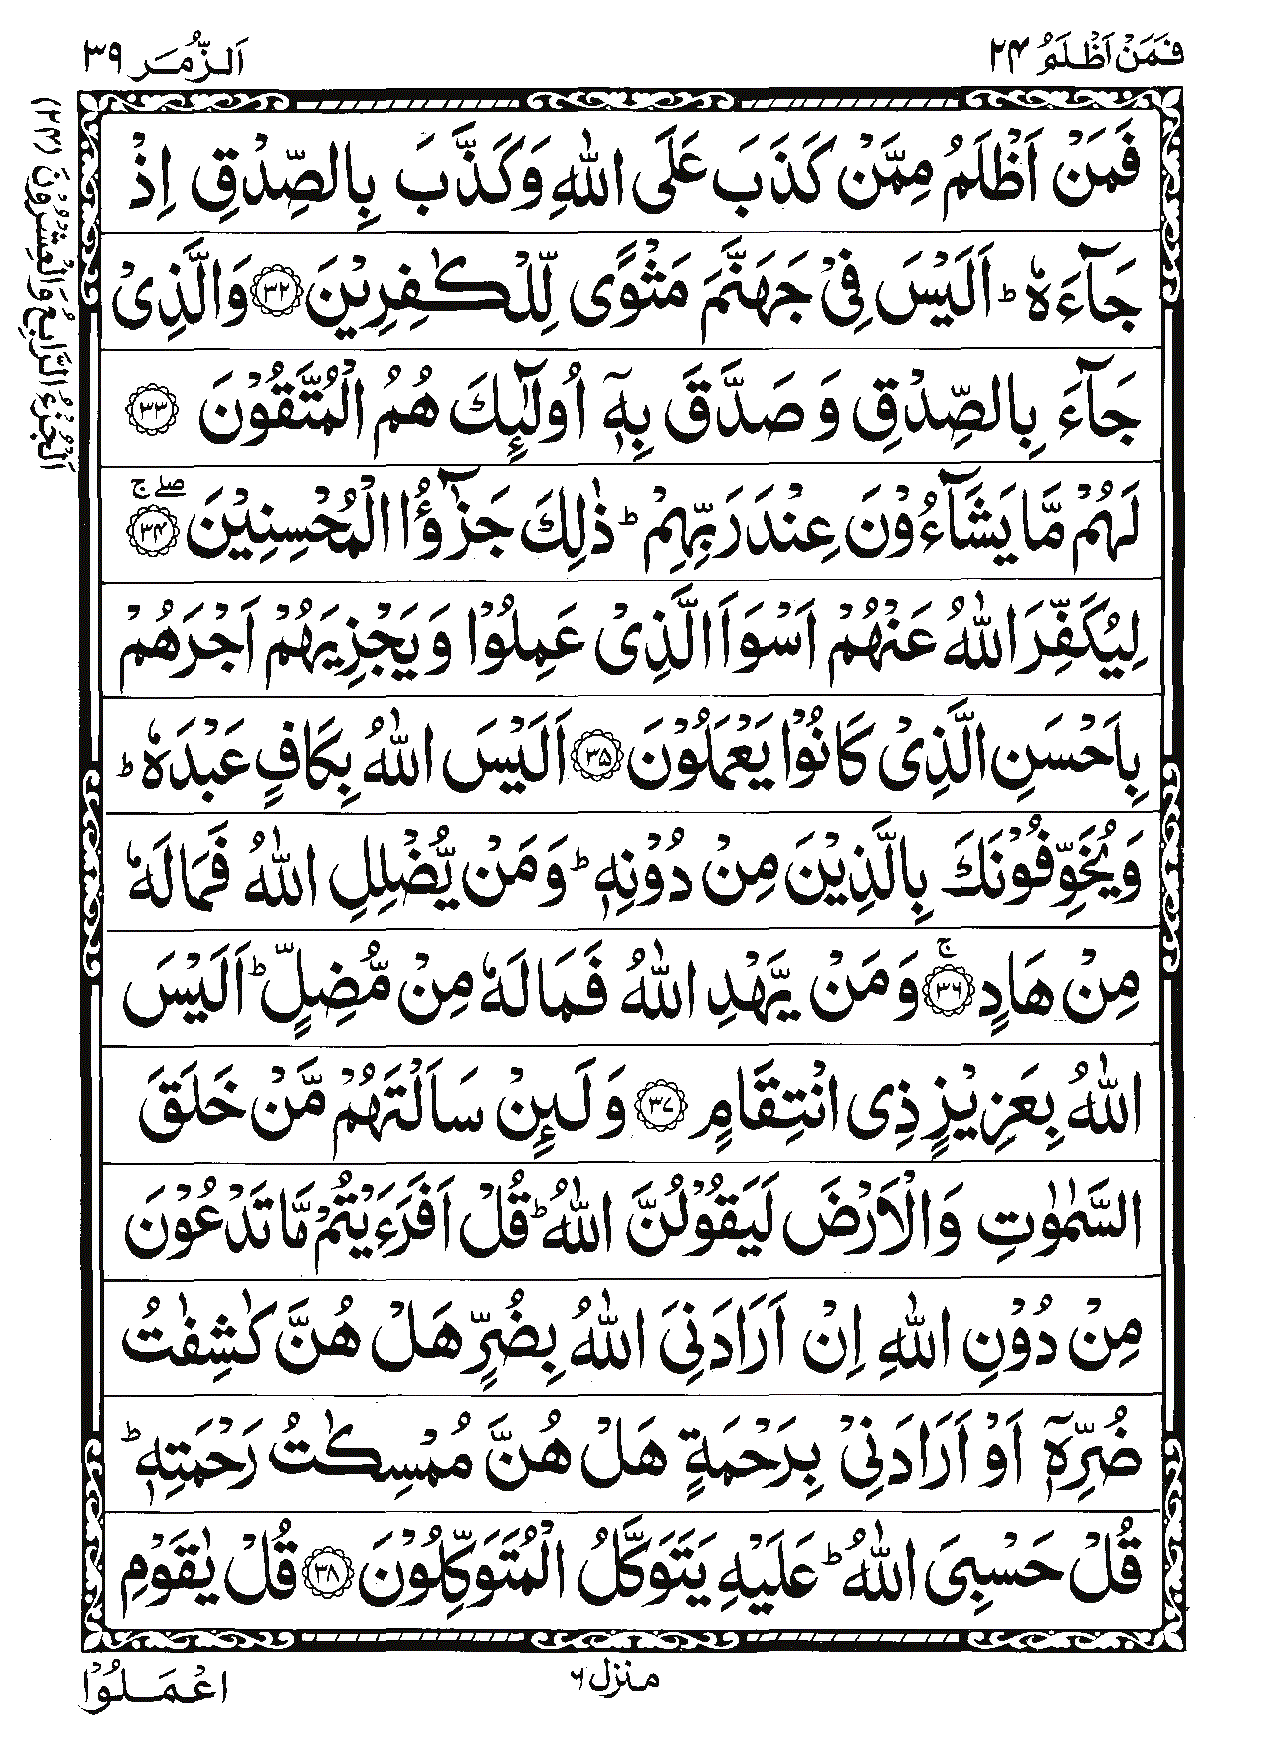 فَمَنْ اَظْلَمُ ٢٤
اَلزُّمَر ٣٩
اَلْجُزْءُ الرَّابِعُ وَالْعِشْرُوْنَ (٢٤)
فَمَنْ اَظْلَمُ مِمَّنْ كَذَبَ عَلَى اللّٰهِ وَكَذَّبَ بِالصِّدْقِ اِذْ
جَآءَهٗ ؕ اَلَيْسَ فِىْ جَهَنَّمَ مَثْوًى لِّلْكٰفِرِيْنَ ﴿٣٢﴾ وَالَّذِىْ
جَآءَ بِالصِّدْقِ وَ صَدَّقَ بِهٖۤ اُولٰٓئِكَ هُمُ الْمُتَّقُوْنَ ﴿٣٣﴾
لَهُمْ مَّا يَشَآءُوْنَ عِنْدَ رَبِّهِمْ ؕ ذٰلِكَ جَزٰٓؤُا الْمُحْسِنِيْنَ ﴿٣٤﴾ صلے ج
لِيُكَفِّرَ اللّٰهُ عَنْهُمْ اَسْوَاَ الَّذِىْ عَمِلُوْا وَ يَجْزِيَهُمْ اَجْرَهُمْ
بِاَحْسَنِ الَّذِىْ كَانُوْا يَعْمَلُوْنَ ﴿٣٥﴾ اَلَيْسَ اللّٰهُ بِكَافٍ عَبْدَهٗ ؕ
وَيُخَوِّفُوْنَكَ بِالَّذِيْنَ مِنْ دُوْنِهٖ ؕ وَمَنْ يُّضْلِلِ اللّٰهُ فَمَا لَهٗ
مِنْ هَادٍ ۚ ﴿٣٦﴾ وَمَنْ يَّهْدِ اللّٰهُ فَمَا لَهٗ مِنْ مُّضِلٍّ ؕ اَلَيْسَ
اللّٰهُ بِعَزِيْزٍ ذِى انْتِقَامٍ ﴿٣٧﴾ وَلَـئِنْ سَاَلْتَهُمْ مَّنْ خَلَقَ
السَّمٰوٰتِ وَالْاَرْضَ لَيَقُوْلُنَّ اللّٰهُ ؕ قُلْ اَفَرَءَيْتُمْ مَّا تَدْعُوْنَ
مِنْ دُوْنِ اللّٰهِ اِنْ اَرَادَنِىَ اللّٰهُ بِضُرٍّ هَلْ هُنَّ كٰشِفٰتُ
ضُرِّهٖۤ اَوْ اَرَادَنِىْ بِرَحْمَةٍ هَلْ هُنَّ مُمْسِكٰتُ رَحْمَتِهٖ ؕ
قُلْ حَسْبِىَ اللّٰهُ ؕ عَلَيْهِ يَتَوَكَّلُ الْمُتَوَكِّلُوْنَ ﴿٣٨﴾ قُلْ يٰقَوْمِ
منزل ٦
اعْمَلُوْا